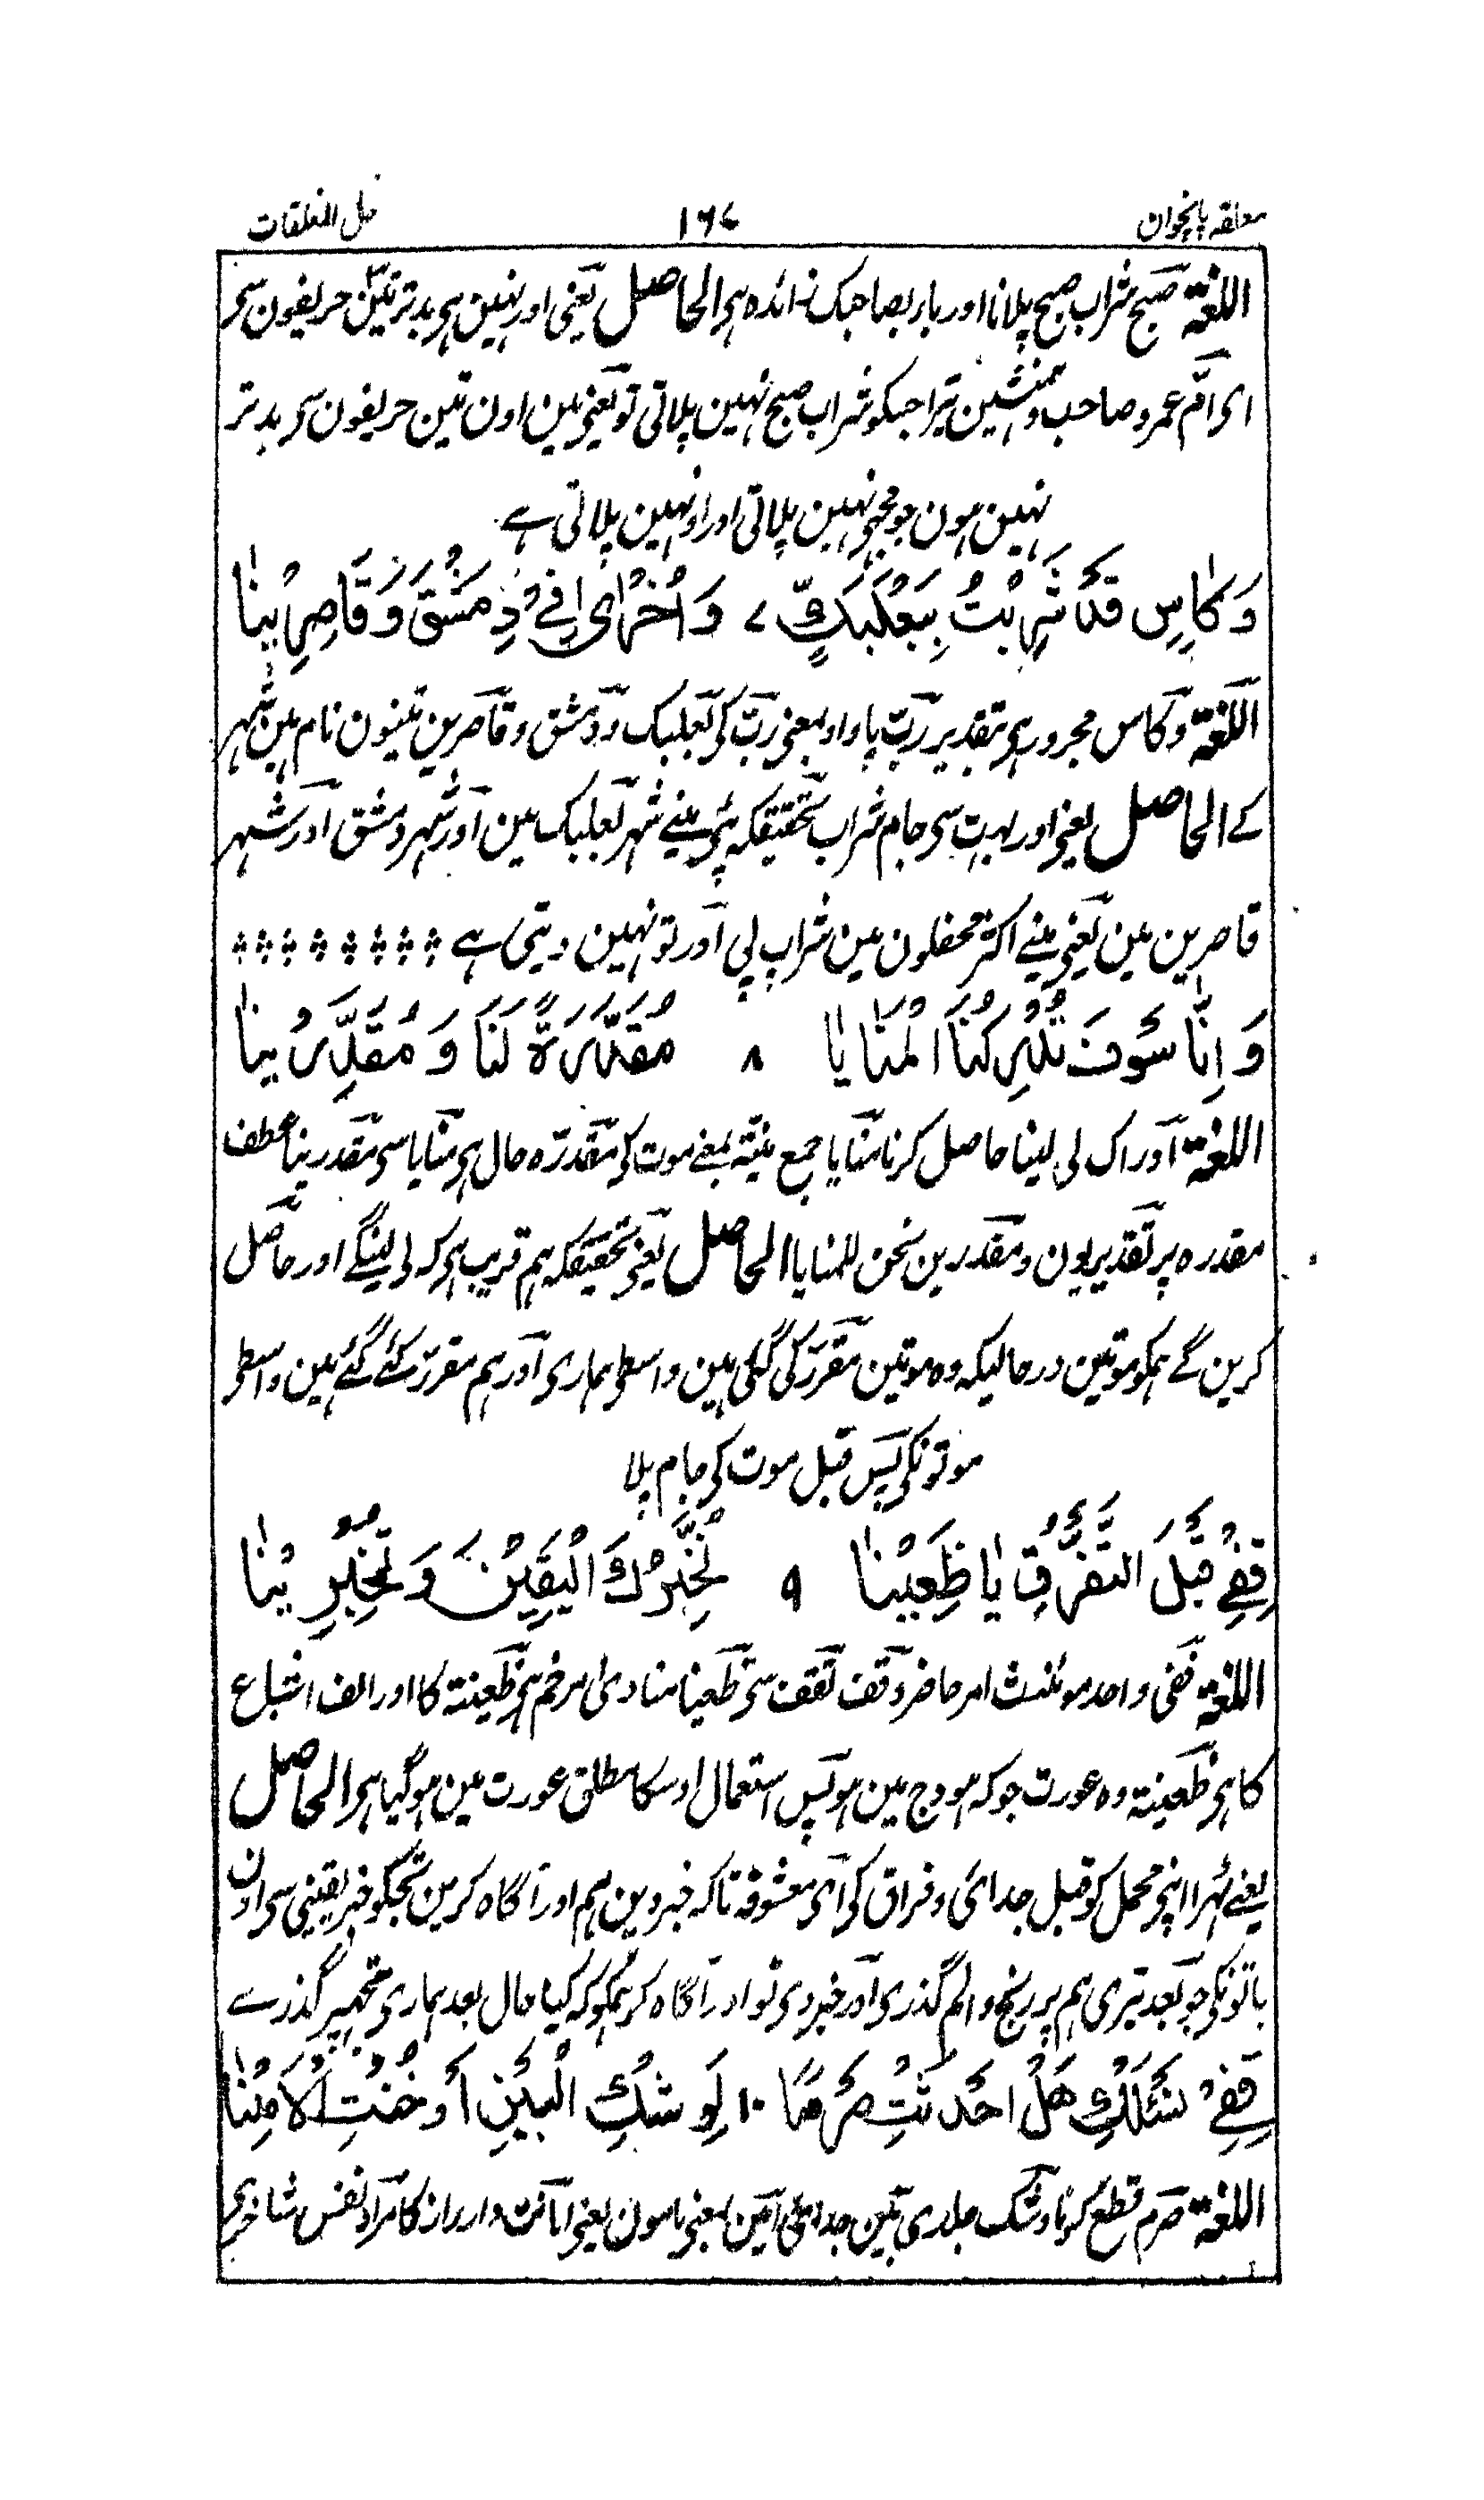 معلقہ پانچوان ۱۶۷ حل المعلقات
اللغۃ صبح شراب صبح پلانا اور باء بصاحبک زائدہ ہی الحاصل یعنی اور نہین ہی بدتر تین حریفون سی
ای ام عمرو صاحب و ہمنشین تیرا جسکو شراب صبح نہین پلاتی تو یعنی مین اون تین حریفون سی بدتر
نہین ہون جو مجھی نہین پلاتی اور اونہین پلاتی ہے
وَكَاسٍ قَدْ شَرِبْتُ بِبَعْلَبَكٍّ ۷ وَاُخْرٰى فِيْ دِمَشْقَ وَقَاصِرِيْنَا
اللغۃ وکاس مجرور ہی بتقدیر ربّ یا واو بمعنی ربّ کی بعلبک و دمشق و قاصرین تینون نام ہین شہر
کے الحاصل یعنی اور بہت سی جام شراب تحقیقکہ پئی مینے شہر بعلبک مین اور شہر دمشق اور شہر
قاصرین مین یعنی مینے اکثر محفلون مین شراب پی اور تو نہین دیتی ہے
وَاِنَّا سَوْفَ تُدْرِكُنَا الْمَنَايَا ۸ مُقَدَّرَةً لَنَا وَمُقَدَّرِيْنَا
اللغۃ ادراک لی لینا حاصل کرنا منایا جمع منیۃ بمعنے موت کی مقدرّہ حال ہی منایا سی مقدرینا عطف
مقدرہ پر تقدیر یون و مقدرین نحن للمنایا الحاصل یعنی تحقیقکہ ہم قریب ہی کہ لی لینگے اور حاصل
کرین گے ہمکو موتین درحالیکہ وہ موتین مقرر کی گئی ہین واسطی ہماری اور ہم مقرر کئے گئے ہین واسطی
موتونکی پس قبل موت کی جام پلا
قِفِيْ قَبْلَ التَّفَرُّقِ يَا ظَعِيْنَا ۹ نُخَبِّرْكِ الْيَقِيْنَ وَتُخْبِرِيْنَا
اللغۃ قفی واحد مونث امر حاضر وقف تقف سی ظعینا منادی مرخم ہی ظعینتہ کا اور الف اشباع
کا ہی ظعینتہ وہ عورت جو کہ ہودج مین ہو پس استعمال اوسکا مطلق عورت مین ہو گیا ہی الحاصل
یعنے ٹہرا اپنی محمل کو قبل جدائی و فراق کی ای معشوقہ تاکہ خبر دین ہم اور آگاہ کرین تجکو خبر یقینی سی اون
باتونکی جو بعد تیری ہم پر رنج و الم گذری اور خبر دی تو اور آگاہ کر ہمکو کہ کیا حال بعد ہماری تجھپر گذرے
قِفِيْ نَسْئَلْكِ هَلْ اَحْدَثْتِ صَرْمًا ۱۰ لِوَشْكِ الْبَيْنِ اَوْ خُنْتِ الْاَمِيْنَا
اللغۃ صرم قطع کرنا وشک جلدی بین جدائی امین بمعنی مامون یعنی امانت دار راز کا مراد نفس شاعر ہی